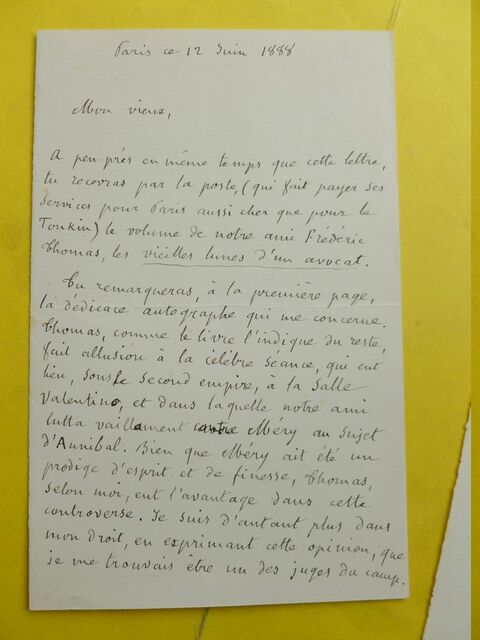 Paris ce 12 Juin 1888
Mon vieux,
A peu-près en même temps que cette lettre,
tu recevras par la poste, (qui fait payer ses
services pour Paris aussi cher que pour le
Tonkin) le volume de notre ami Frédéric
Thomas, les vieilles lunes d'un avocat.
Tu remarqueras, à la première page,
la dédicace autographe qui me concerne.
Thomas, comme le livre l'indique du reste,
fait allusion à la célèbre séance, qui eut
lieu, sous le second empire, à la Salle
Valentino, et dans laquelle notre ami
lutta vaillament contre Méry au sujet
d'Annibal. Bien que Méry ait été un
prodige d'esprit et de finesse, Thomas,
selon moi, eut l'avantage dans cette
controverse. Je suis d'autant plus dans
mon droit, en exprimant cette opinion, que
je me trouvais être un des juges du camp.